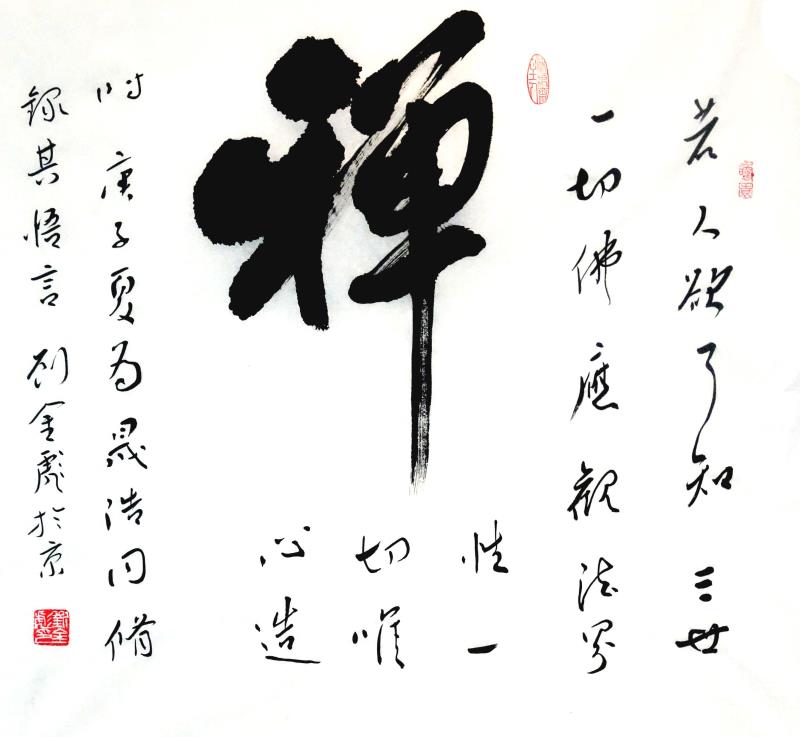 禅
若人欲了知三世
一切佛應觀法界
性一
切唯
心造
时庚子夏为晟浩同脩
錄其悟言刘金彪於京